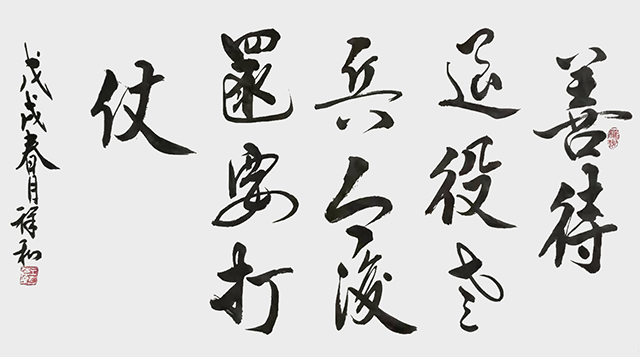 善待
退役老
兵今後
還要打
仗
戊戌春月祥和